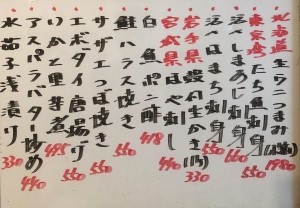 北海道 生ウニつまみ 1980
東京湾 たち魚刺身 550
活〆しまあじ刺身 660
活〆 刺身 550
岩手県 殻付生かき(1ヶ) 330
宮城県 ほや刺し 440
白魚ポン酢 418
鮭ハラス焼き 550
サザエつぼ焼き 550
エボダイ唐揚げ 550
いかと里芋煮 495
アスパラバター炒め 440
水茄子浅漬り 330